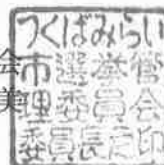 会
美
つくばみらい
市選挙管
理委員会
委員長之印